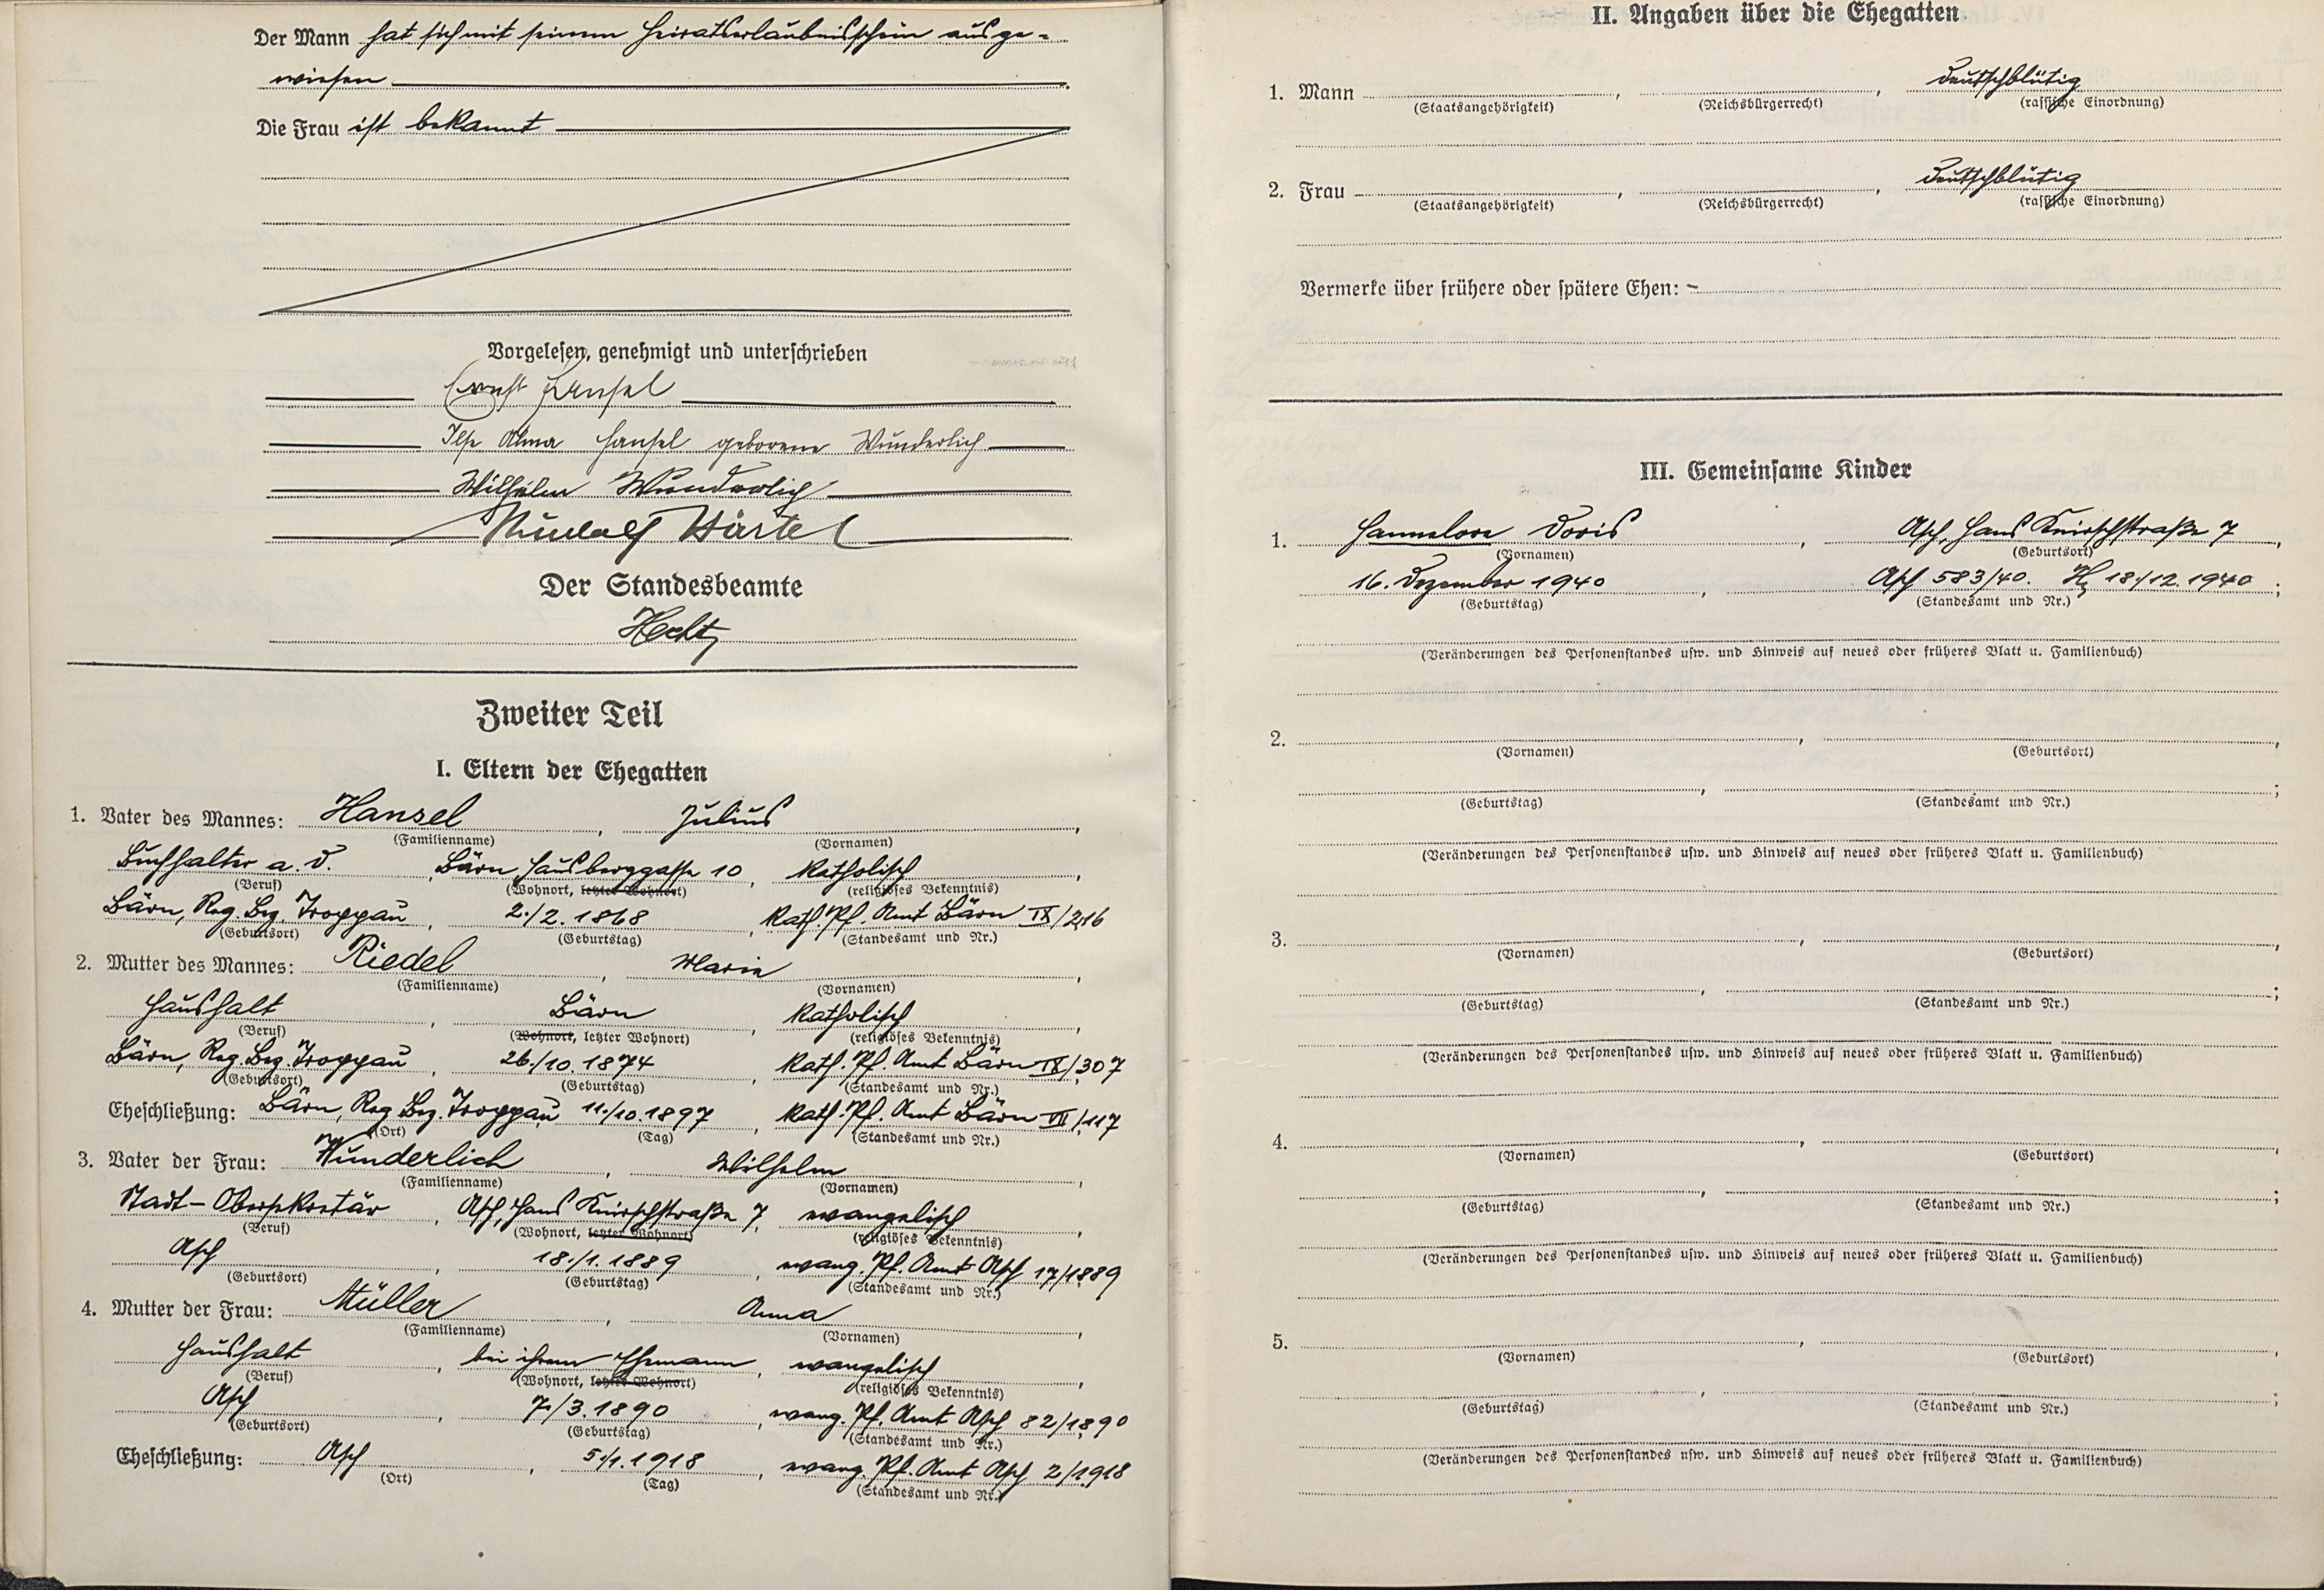 Der Mann hat sich mit seinem Heiratserlaubnisschein ausge-
wiesen
Die Frau ist bekannt
Vorgelesen, genehmigt und unterschrieben
Ernst Hansel
Ilse Alma Hansel geborene Wunderlich
Wilhelm Wunderlich
Rudolf Härtel
Der Standesbeamte
Hecht
Zweiter Teil
I. Eltern der Ehegatten
1. Vater des Mannes: Hansel, Julius,
(Familienname) (Vornamen)
Buchhalter a. D., Bärn, Hausberggasse 10, katholisch,
(Beruf) (Wohnort, letzter Wohnort) (religiöses Bekenntnis)
Bärn, Reg. Bez. Troppau, 2./2. 1868, Kath. Pf. Amt Bärn IX/216
(Geburtsort) (Geburtstag) (Standesamt und Nr.)
2. Mutter des Mannes: Riedel, Marie,
(Familienname) (Vornamen)
Haushalt, Bärn, katholisch,
(Beruf) (Wohnort, letzter Wohnort) (religiöses Bekenntnis)
Bärn, Reg. Bez. Troppau, 26./10. 1874, Kath. Pf. Amt Bärn IX/307
(Geburtsort) (Geburtstag) (Standesamt und Nr.)
Eheschließung: Bärn, Reg. Bez. Troppau 11./10. 1897, Kath. Pf. Amt Bärn VII/117
(Ort) (Tag) (Standesamt und Nr.)
3. Vater der Frau: Wunderlich, Wilhelm,
(Familienname) (Vornamen)
Stadt-Obersekretär, Asch, Hans Knirschstraße 7, evangelisch,
(Beruf) (Wohnort, letzter Wohnort) (religiöses Bekenntnis)
Asch, 18./1. 1889, evang. Pf. Amt Asch 17/1889
(Geburtsort) (Geburtstag) (Standesamt und Nr.)
4. Mutter der Frau: Müller, Anna,
(Familienname) (Vornamen)
Haushalt, bei ihrem Ehemann, evangelisch,
(Beruf) (Wohnort, letzter Wohnort) (religiöses Bekenntnis)
Asch, 7./3. 1890, evang. Pf. Amt Asch 82/1890
(Geburtsort) (Geburtstag) (Standesamt und Nr.)
Eheschließung: Asch, 5./1. 1918, evang. Pf. Amt Asch 2/1918
(Ort) (Tag) (Standesamt und Nr.)
II. Angaben über die Ehegatten
1. Mann , , deutschblütig
(Staatsangehörigkeit) (Reichsbürgerrecht) (rassische Einordnung)
2. Frau , , deutschblütig
(Staatsangehörigkeit) (Reichsbürgerrecht) (rassische Einordnung)
Vermerke über frühere oder spätere Ehen: -
III. Gemeinsame Kinder
1. Hannelore Doris, Asch, Hans Knirschstraße 7,
(Vornamen) (Geburtsort)
16. Dezember 1940, Asch 583/40. H, 18./12. 1940;
(Geburtstag) (Standesamt und Nr.)
(Veränderungen des Personenstandes usw. und Hinweis auf neues oder früheres Blatt u. Familienbuch)
2. , ,
(Vornamen) (Geburtsort)
, ;
(Geburtstag) (Standesamt und Nr.)
(Veränderungen des Personenstandes usw. und Hinweis auf neues oder früheres Blatt u. Familienbuch)
3. , ,
(Vornamen) (Geburtsort)
, ;
(Geburtstag) (Standesamt und Nr.)
(Veränderungen des Personenstandes usw. und Hinweis auf neues oder früheres Blatt u. Familienbuch)
4. , ,
(Vornamen) (Geburtsort)
, ;
(Geburtstag) (Standesamt und Nr.)
(Veränderungen des Personenstandes usw. und Hinweis auf neues oder früheres Blatt u. Familienbuch)
5. , ,
(Vornamen) (Geburtsort)
, ;
(Geburtstag) (Standesamt und Nr.)
(Veränderungen des Personenstandes usw. und Hinweis auf neues oder früheres Blatt u. Familienbuch)